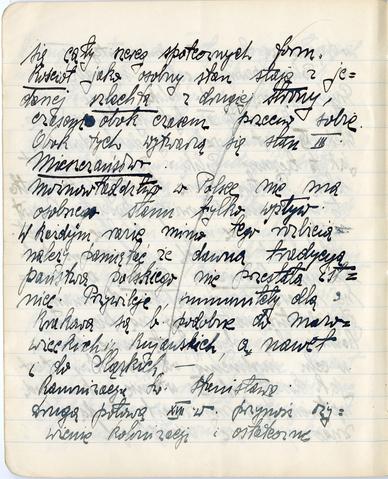 się cały szereg społecznych form.
Kościół jako osobny stan staje z je=
dnej szlachta z drugiej strony,
czasem obok czasem przeciw sobie.
Obok tych wytwarza się stan III.
Mieszczaństwo.
Możnowładztwo w Polsce nie ma
osobnego stanu tylko wpływ.
W każdym razie mimo tego rozbicia
należy pamiętać że dawna tradycya
państwa polskiego nie przestała ist=
nieć. Przywileje immunitety dla
Krakowa są b. podobne do mazo=
wieckich, kujawskich, a nawet
i do śląskich. —
Kanonizacja św. Stanisława.
Druga połowa XIII w. przynosi oży=
wienie kolonizacji i ostateczne